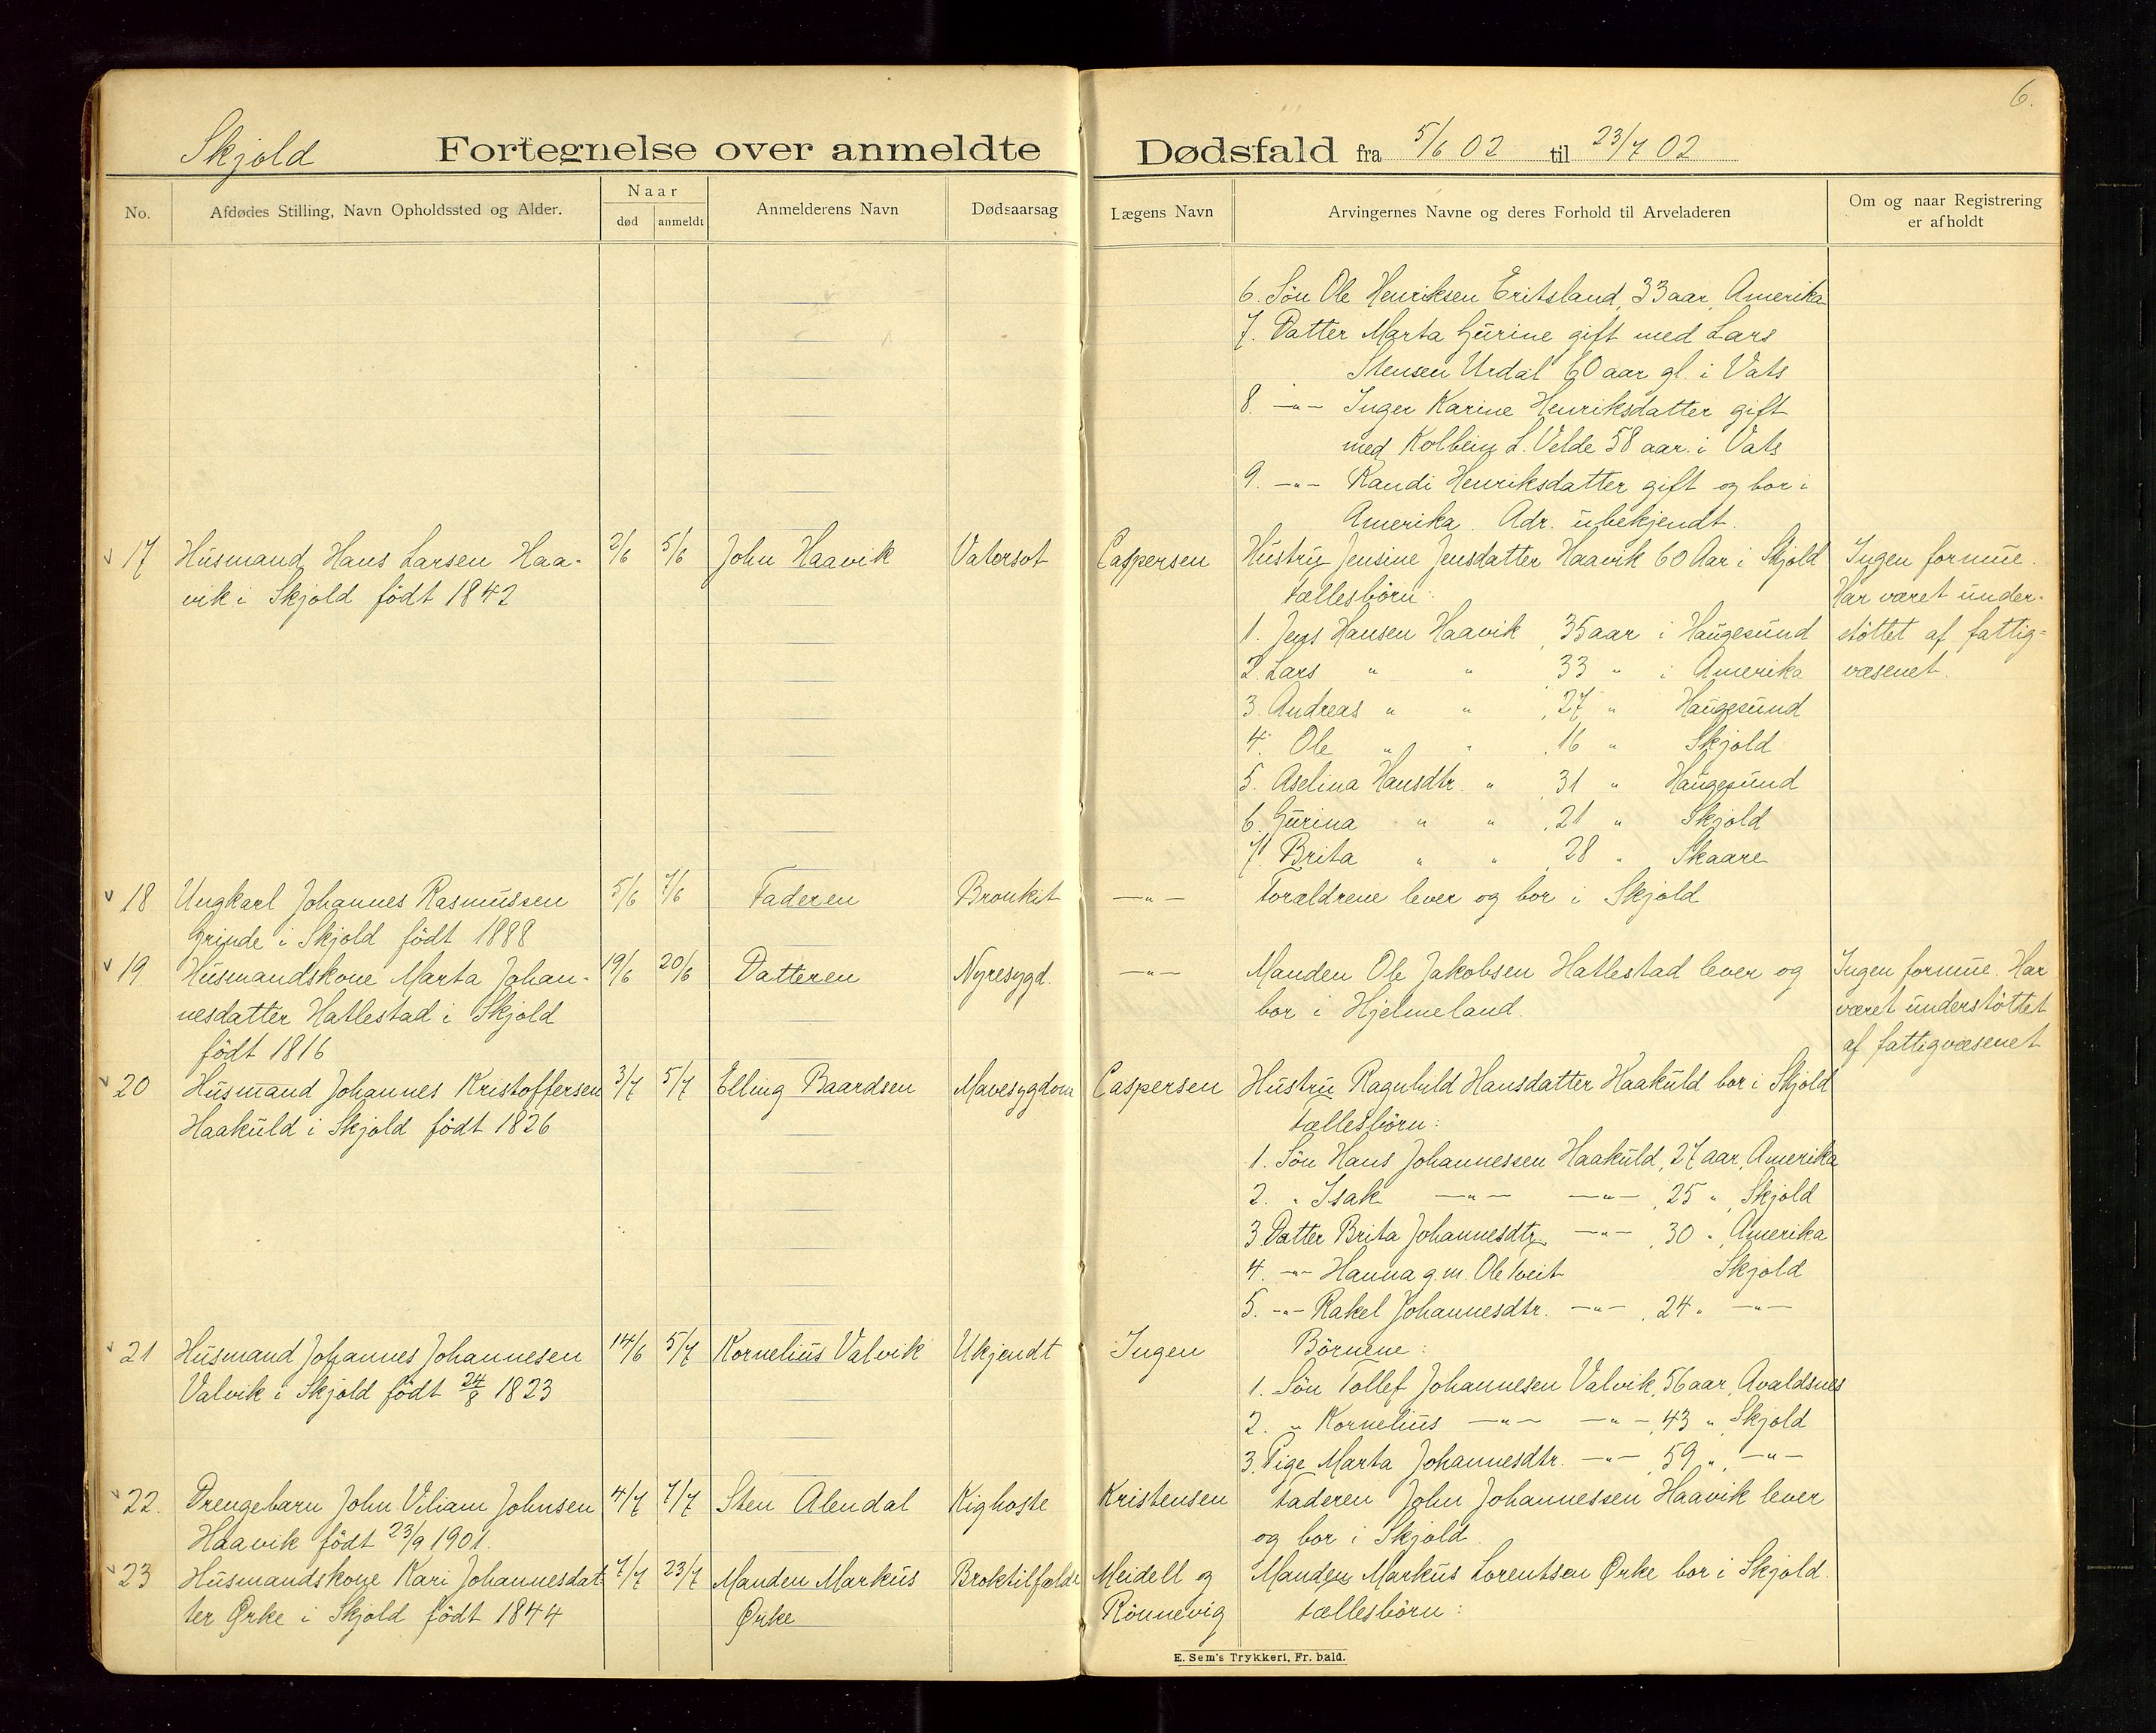 6.
Skjold Fortegnelse over anmeldte Dødsfald fra 5/6 02 til 23/7 02
No. Afdødes Stilling, Navn Opholdssted og Alder. Naar død anmeldt Anmelderens Navn Dødsaarsag Lægens Navn Arvingernes Navne og deres Forhold til Arveladeren Om og naar Registrering er afholdt
6. Søn Ole Henriksen Eritsland, 33 aar, Amerika
7. Datter Marta Gurine gift med Lars
Stensen Urdal 60 aar gl. i Vats
8. -"- Inger Karine Henriksdatter gift
med Kolbein L. Velde 58 aar. i Vats
9. -"- Randi Henriksdatter gift og bor i
Amerika. Adr. ubekjendt.
17 Husmand Hans Larsen Haa- 5/6 John Haavik Vatersot Caspersen Hustru Jensine Jensdatter Haavik 60 Aar i Skjold Ingen formue.
vik i Skjold født 1842 Fællesbørn: Har været under-
1. Jens Hansen Haavik, 35 aar i Haugesund støttet af fattig=
2. Lars " " 33 " i Amerika væsenet.
3. Andreas " " , 27 " Haugesund
4. Ole " " , 16 " Skjold
5. Aselina Hansdtr. " , 31 " Haugesund
6. Gurina " " , 21 " Skjold
7. Brita " " , 28 " Skaare
18 Ungkarl Johannes Rasmussen 5/6 7/6 Faderen Bronkit -"- Forældrene lever og bor i Skjold
Grinde i Skjold født 1888
19. Husmandskone Marta Johan- 19/6 20/6 Datteren Nyresygd. -"- Manden Ole Jakobsen Hallestad lever og Ingen formue. Har
nesdatter Hallestad i Skjold bor i Hjelmeland. været understøttet
født 1816 af fattigvæsenet
20 Husmand Johannes Kristoffersen 3/7 5/7 Elling Baardsen Mavesygdom Caspersen Hustru Ragnhild Hansdatter Haakuld bor i Skjold
Haakuld i Skjold født 1826 Fællesbørn:
1. Søn Hans Johannessen Haakuld, 27 aar, Amerika
2. " Isak -"- -"- , 25 " , Skjold
3 Datter Brita Johannesdtr. -"- , 30 " , Amerika
4. -"- Hanna g.m. Ole Tveit Skjold
5. -"- Rakel Johannesdtr. -"- , 24 " -"-
21 Husmand Johannes Johannesen 14/6 5/7 Kornelius Valvik Ukjendt Ingen Børnene:
Valvik i Skjold født 24/8 1823 1. Søn Tollef Johannesen Valvik, 56 aar, Avaldsnes
2. " Kornelius -"- -"- , 43 " , Skjold
3. Pige Marta Johannesdtr. -"- , 59 " , -"-
22. Drengebarn John Viliam Johnsen 4/7 7/7 Sten Alendal Kighoste Kristensen Faderen John Johannessen Haavik lever
Haavik født 23/9 1901. og bor i Skjold
23 Husmandskone Kari Johannesdat- 7/7 23/7 Manden Markus Broktilfælde Meidell og Manden Markus Lorentsen Ørke bor i Skjold.
ter Ørke i Skjold født 1844 Ørke Rönnevig Fællesbørn:
E. Sem's Trykkeri, Fr. hald.